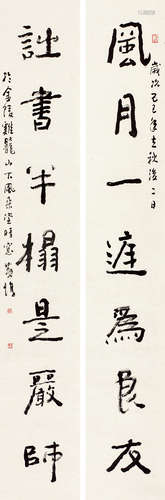 風月一涯為良友
詩書半榻是嚴師
歲次己巳年立秋後二日
於金陵雞龍山下風來堂時寒